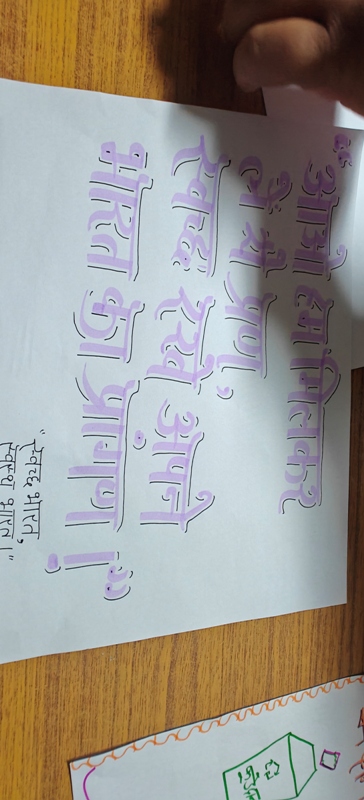 "आओ हम मिलकर
ले ये प्रण,
स्वच्छ रखे अपने
भारत का प्रांगण !"
"स्वच्छ भारत,
स्वस्थ भारत।"